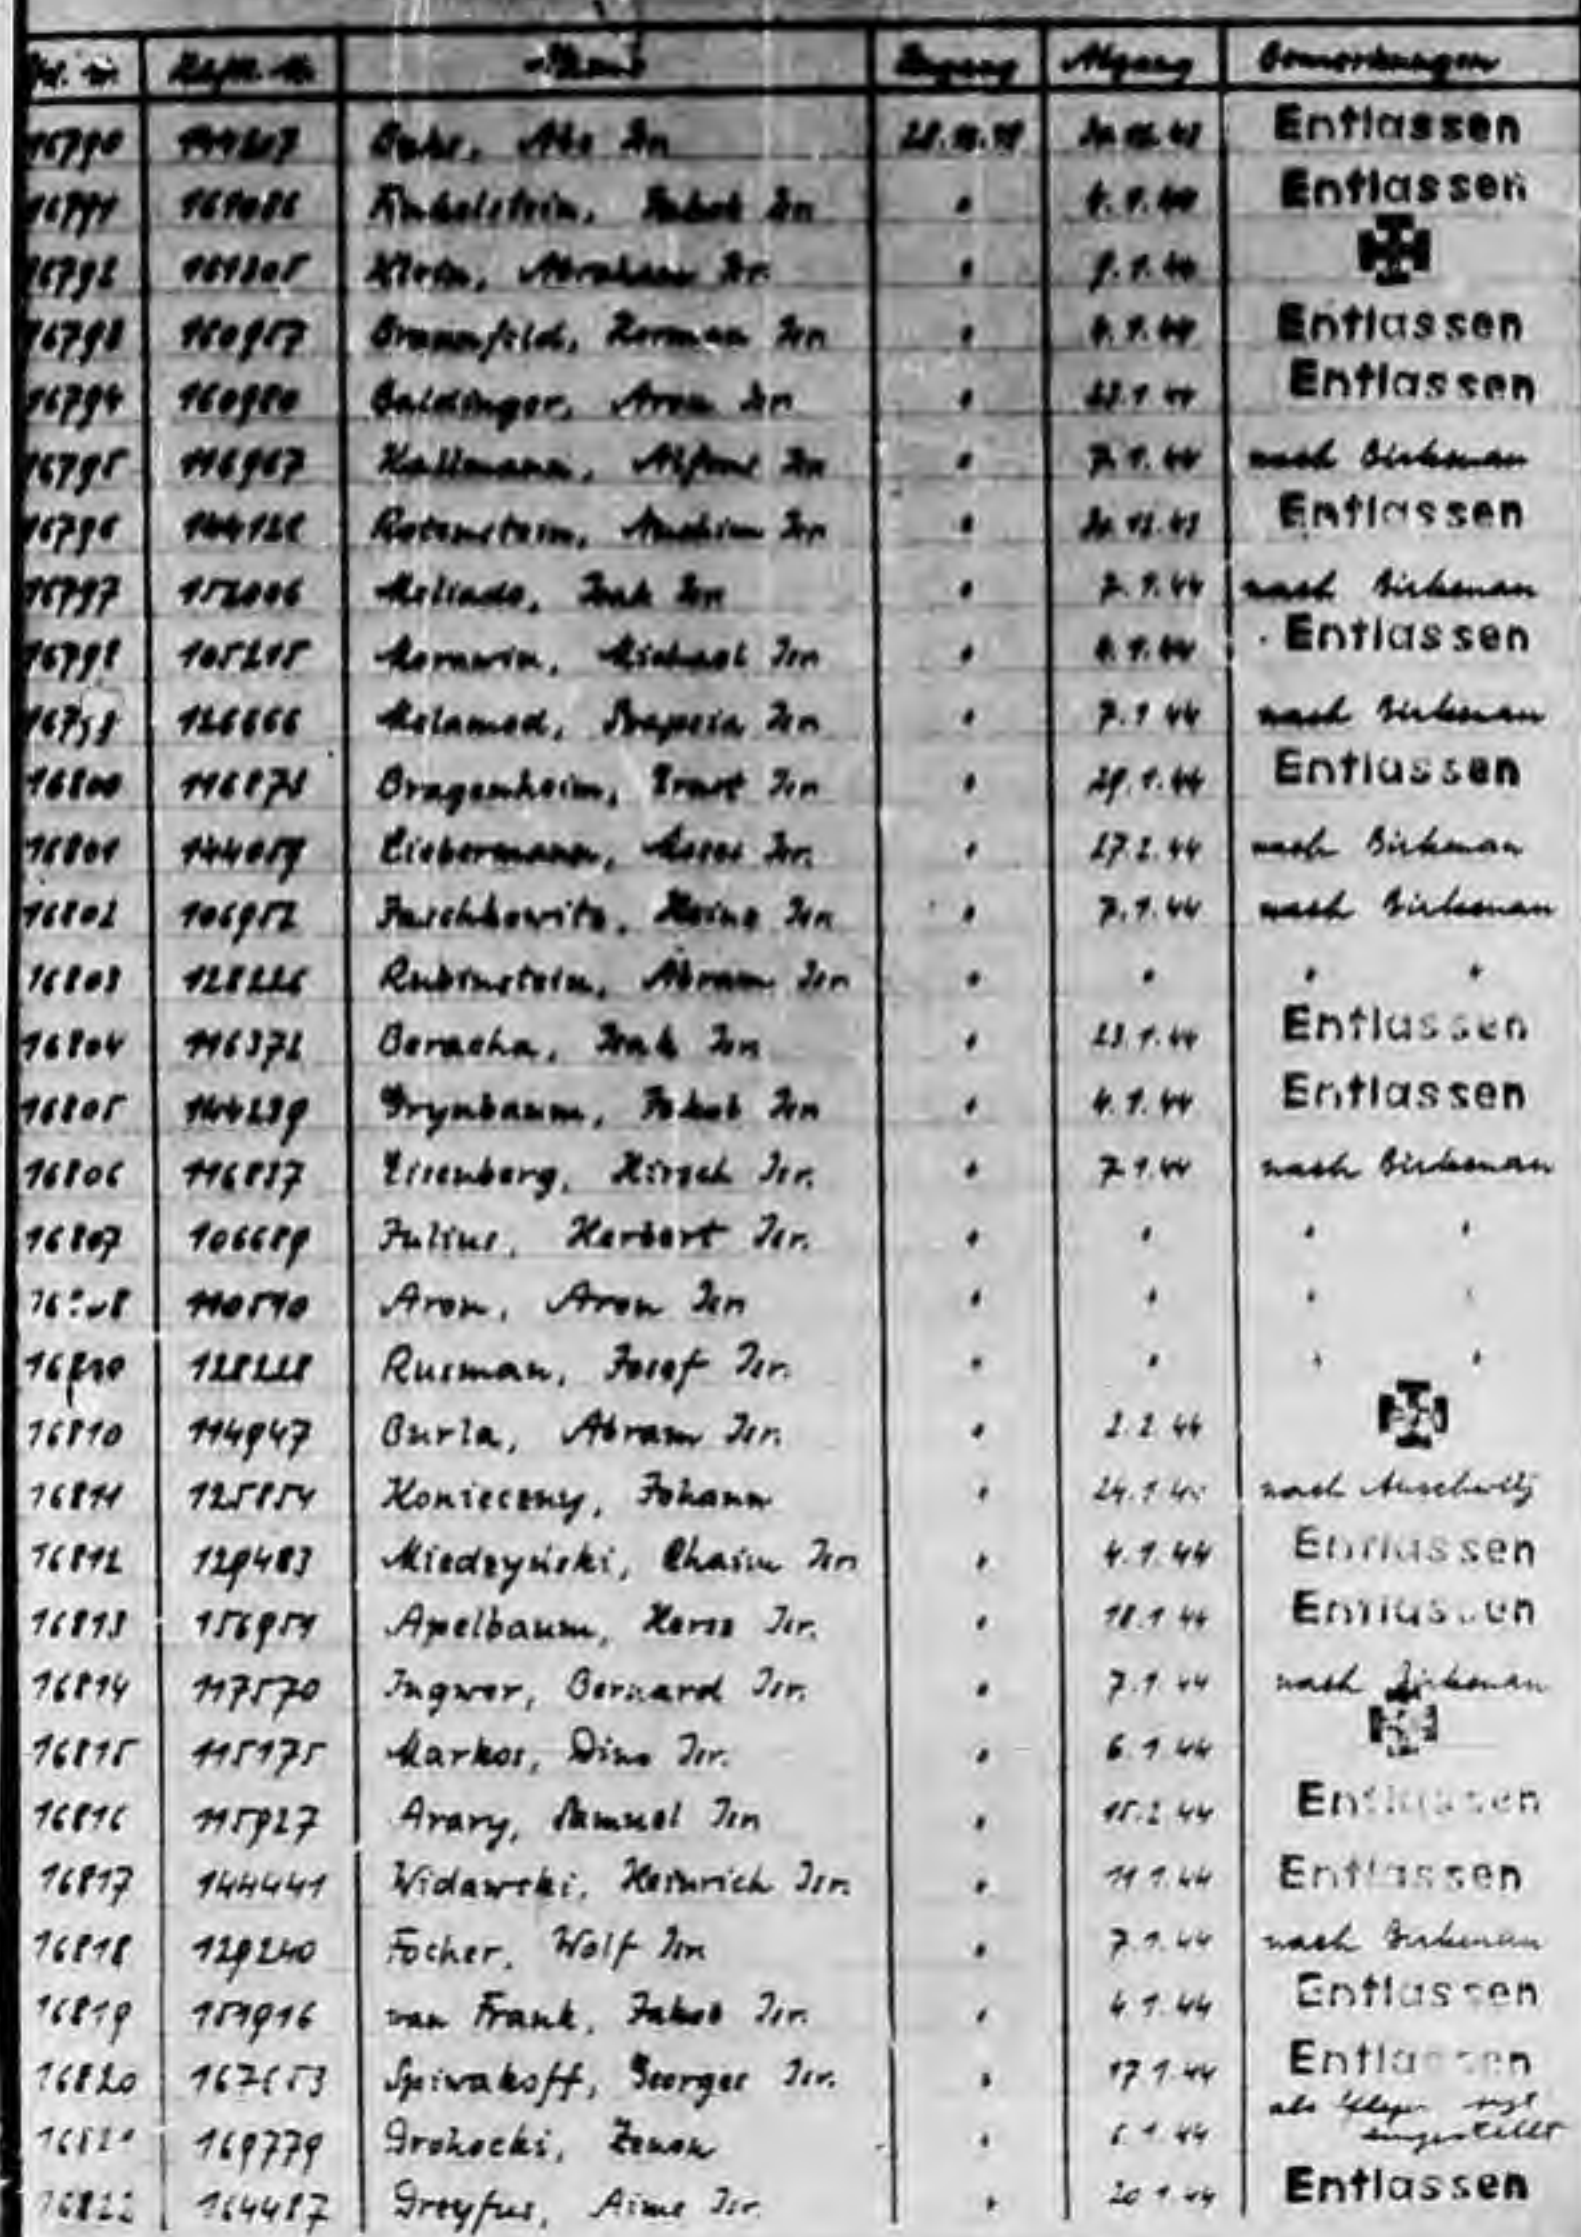 Zugang Abgang Bemerkungen
16790 Isr. 30.12.43 Entlassen
16791 161086 Finkelstein, Jakob Isr. " 4.1.44 Entlassen
16792 Klein, Abraham Isr. "
16793 160957 Braunfeld, Herman Isr. " 4.1.44 Entlassen
16794 160980 Baldinger, Aron Isr. " 23.1.44 Entlassen
16795 116967 Hallmann, Alfons Isr. " 7.1.44 nach Birkenau
16796 144126 Rotenstein, Isr. " 30.12.43 Entlassen
16797 152006 Isak Isr. " 7.1.44 nach Birkenau
16798 105215 Morawin, Michael Isr. " 4.1.44 Entlassen
16799 126666 Melamed, Isr. " 7.1.44 nach Birkenau
16800 Bragenheim, Ernst Isr. " 29.1.44 Entlassen
16801 144059 Liebermann, Moses Isr. " 27.2.44 nach Birkenau
16802 106952 Juschkowitz, Heinz Isr. " 7.1.44 nach Birkenau
16803 128226 Rubinstein, Abram Isr. " " " "
16804 116372 Beracha, Isak Isr. " 23.1.44 Entlassen
16805 144239 Grynbaum, Jakob Isr. " 4.1.44 Entlassen
16806 116837 Eisenberg, Hirsch Isr. " 7.1.44 nach Birkenau
16807 106689 Julius, Herbert Isr. " " " "
110510 Aron, Aron Isr. " " " "
128228 Rusman, Josef Isr. " " " "
16810 114947 Burla, Abram Isr. " 2.2.44
16811 125854 Konieczny, Johann " nach Auschwitz
16812 129483 Miedzyński, Chaim Isr. " 4.1.44 Entlassen
16813 156951 Apelbaum, Hersz Isr. " 18.1.44 Entlassen
16814 117570 Ingwer, Bernard Isr. " 7.1.44 nach Birkenau
16815 115175 Markos, Dino Isr. " 6.1.44
16816 115927 Arary, Samuel Isr. " 15.2.44 Entlassen
16817 144441 Widawski, Heinrich Isr. " 11.1.44 Entlassen
16818 129240 Focher, Wolf Isr. " 7.1.44 nach Birkenau
16819 151916 van Frank, Jakob Isr. " 4.1.44 Entlassen
16820 167653 Spiwakoff, Georges Isr. " 17.1.44 Entlassen
als Pfleger
eingestellt
169779 Drohocki, Zenon " 6.1.44
16822 164487 Dreyfus, Aime Isr. " 20.1.44 Entlassen